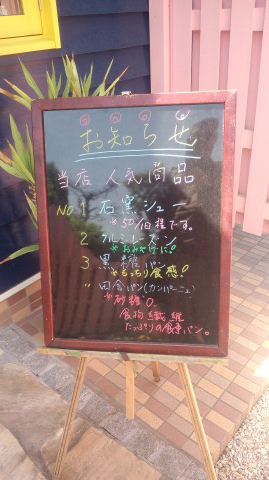 お知らせ
当店 人気商品
NO 1 石窯シュー
※50個程です。
2 クルミレーズン
※おみやげに!
3 黒糖パン
※もっちり食感!
〃 田舎パン(カンパーニュ)
※砂糖0
食物繊維
たっぷりの食事パン。